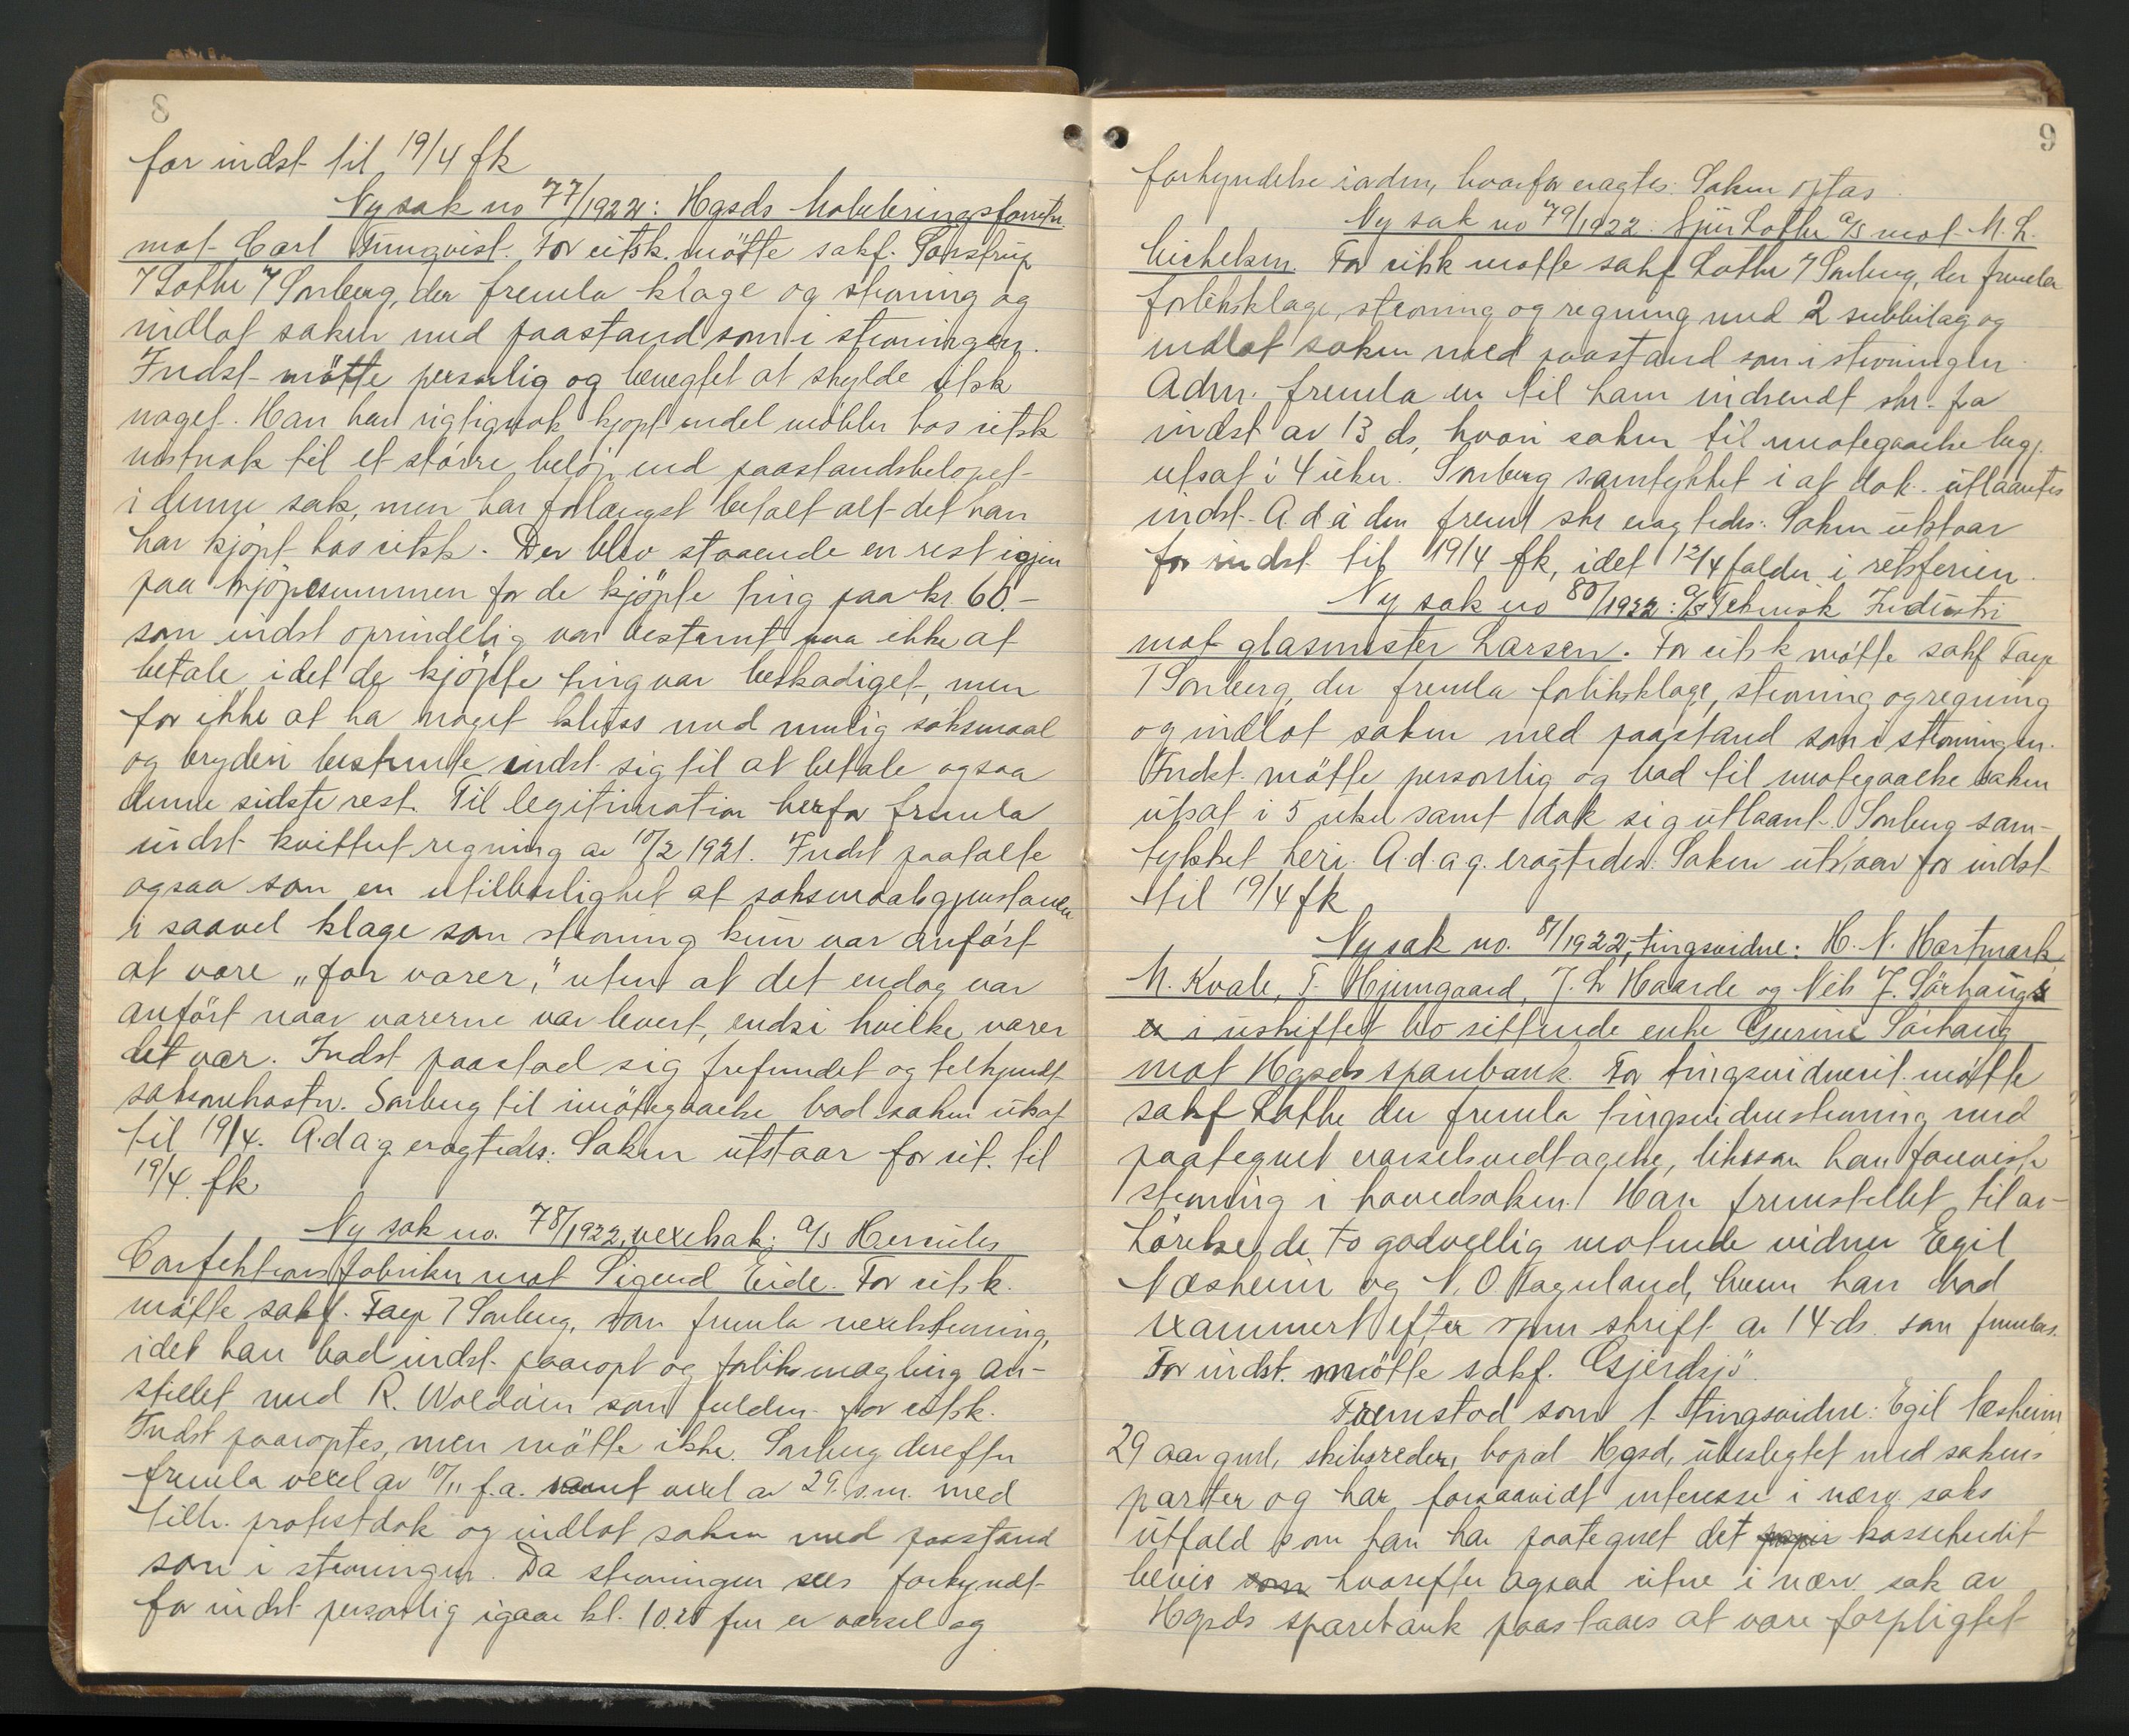 8
for indst til 19/4 fk
Ny sak no 77/1922: Hgsds Møbleringsforretn.
mot Carl Tunqvist. For citsk. mötte sakf.
7 Lothe 7 Sonberg, der fremla klage og stevning og
indlot saken med paastand som i stevningen.
Indst mötte personlig og benegtet at skylde citsk
noget. Han har rigtignok kjöpt endel möbler hos citsk
nestnok til et större belöp end paastandsbelöpet
i denne sak, men har forlængst betalt alt det han
har kjöpt hos citsk. Der blev staaende en rest igjen
paa kjöpesummen for de kjöpte ting paa kr. 60.-
som indst oprindelig var bestemt paa ikke at
betale idet de kjöpte ting var beskadiget, men
for ikke at ha noget kluss med mulig söksmaal
og bryderi bestemte indst. sig til at betale ogsaa
denne sidste rest. Til legitimation herfor fremla
indst kvittert regning av 10/2 1921. Indst paatalte
ogsaa som en utilbörlighet at söksmaalsgjenstanden
i saavel klage som stevning kun var anfört
at være "for varer," uten at det endog var
anfört naar varerne var levert, endsi hvilke varer
det var. Indst paastod sig frifundet og tilkjendt
saksomkostn. Sonberg til imötegaaelse bad saken utsat
til 19/4. A.d.a.g. eragtedes: Saken utstaar for cit. til
19/4 fk
Ny sak no. 78/1922, vexelsak: A/S Hercules
Confektionsfabriker mot Sigurd Eide. For citsk.
mötte sakf. Faep 7 Sonberg, som fremla vexelstevning,
idet han bad indst. paaropt og forliksmægling an-
stillet med R. Woldom som fuldm. for citsk.
Indst paaroptes, men mötte ikke. Sonberg derefter
fremla vexel av 10/11 f.a. samt vexel av 29. s.m. med
tilh. protestdok og indlot saken med paastand
som i stevningen. Da stevningen sees forkyndt
for indst personlig igaar kl. 10.25 fm er varsel og
9
forkyndelse i orden, hvorfor eragtes: Saken optas.
Ny sak no 79/1922: Sjur Lothe A/S mot M. L.
Michelsen. For citsk mötte sakf Lothe 7 Sonberg, der fremla
forliksklage, stevning og regning med 2 subbilag og
indlot saken med paastand som i stevningen.
Adm. fremla en til ham indsendt skr. fra
indst av 13 ds, hvori saken til imötegaaelse beg.
utsat i 4 uker. Sonberg samtykket i at dok. utlaantes
indst. A d a den freml skr eragtedes: Saken utstaar
for indst til 19/4 fk, idet 12/4 falder i retsferien.
Ny sak no 80/1922: A/S Teknisk Industri
mot glasmester Larsen. For citsk mötte sakf Faep
7 Sonberg, der fremla forliksklage, stevning og regning
og indlot saken med paastand som i stevningen.
Indst. mötte personlig og bad til imötegaaelse saken
utsat i 5 uker samt dok sig utlaant. Sonberg sam-
tykket heri. A.d.a.g. eragtedes: Saken utstaar for indst
til 19/4 fk
Ny sak no. 81/1922, tingsvidne: H. N. Hartmark,
M. Kvale, T. Hjemgaard, J. L Haarde og Nils J. Sörhaugs
i uskiftet bo sittende enke Gurine Sörhaug
mot Hgsds sparebank. For tingsvidnecit. mötte
sakf Lothe der fremla tingsvidnestevning med
paategnet varselsvedtagelse, likesom han foreviste
stevning i hovedsaken. Han fremstillet til av-
hörelse de to godvillig mötende vidner Egil
Næsheim og N. O Fagerland, hvem han bad
examinert efter spm skrift av 14 ds. som fremlas.
For indst. mötte sakf. Gjerdsjö.
Fremstod som 1. tingsvidne: Egil Næsheim
29 aar gml, skibsreder, bopæl Hgsd, ubeslegtet med sakens
parter og har forsaavidt interesse i nærv. saks
utfald som han har paategnet det papir kassekredit
bevis som hvorefter ogsaa citne i nærv. sak av
Hgsds sparebank paastaaes at være forpligtet